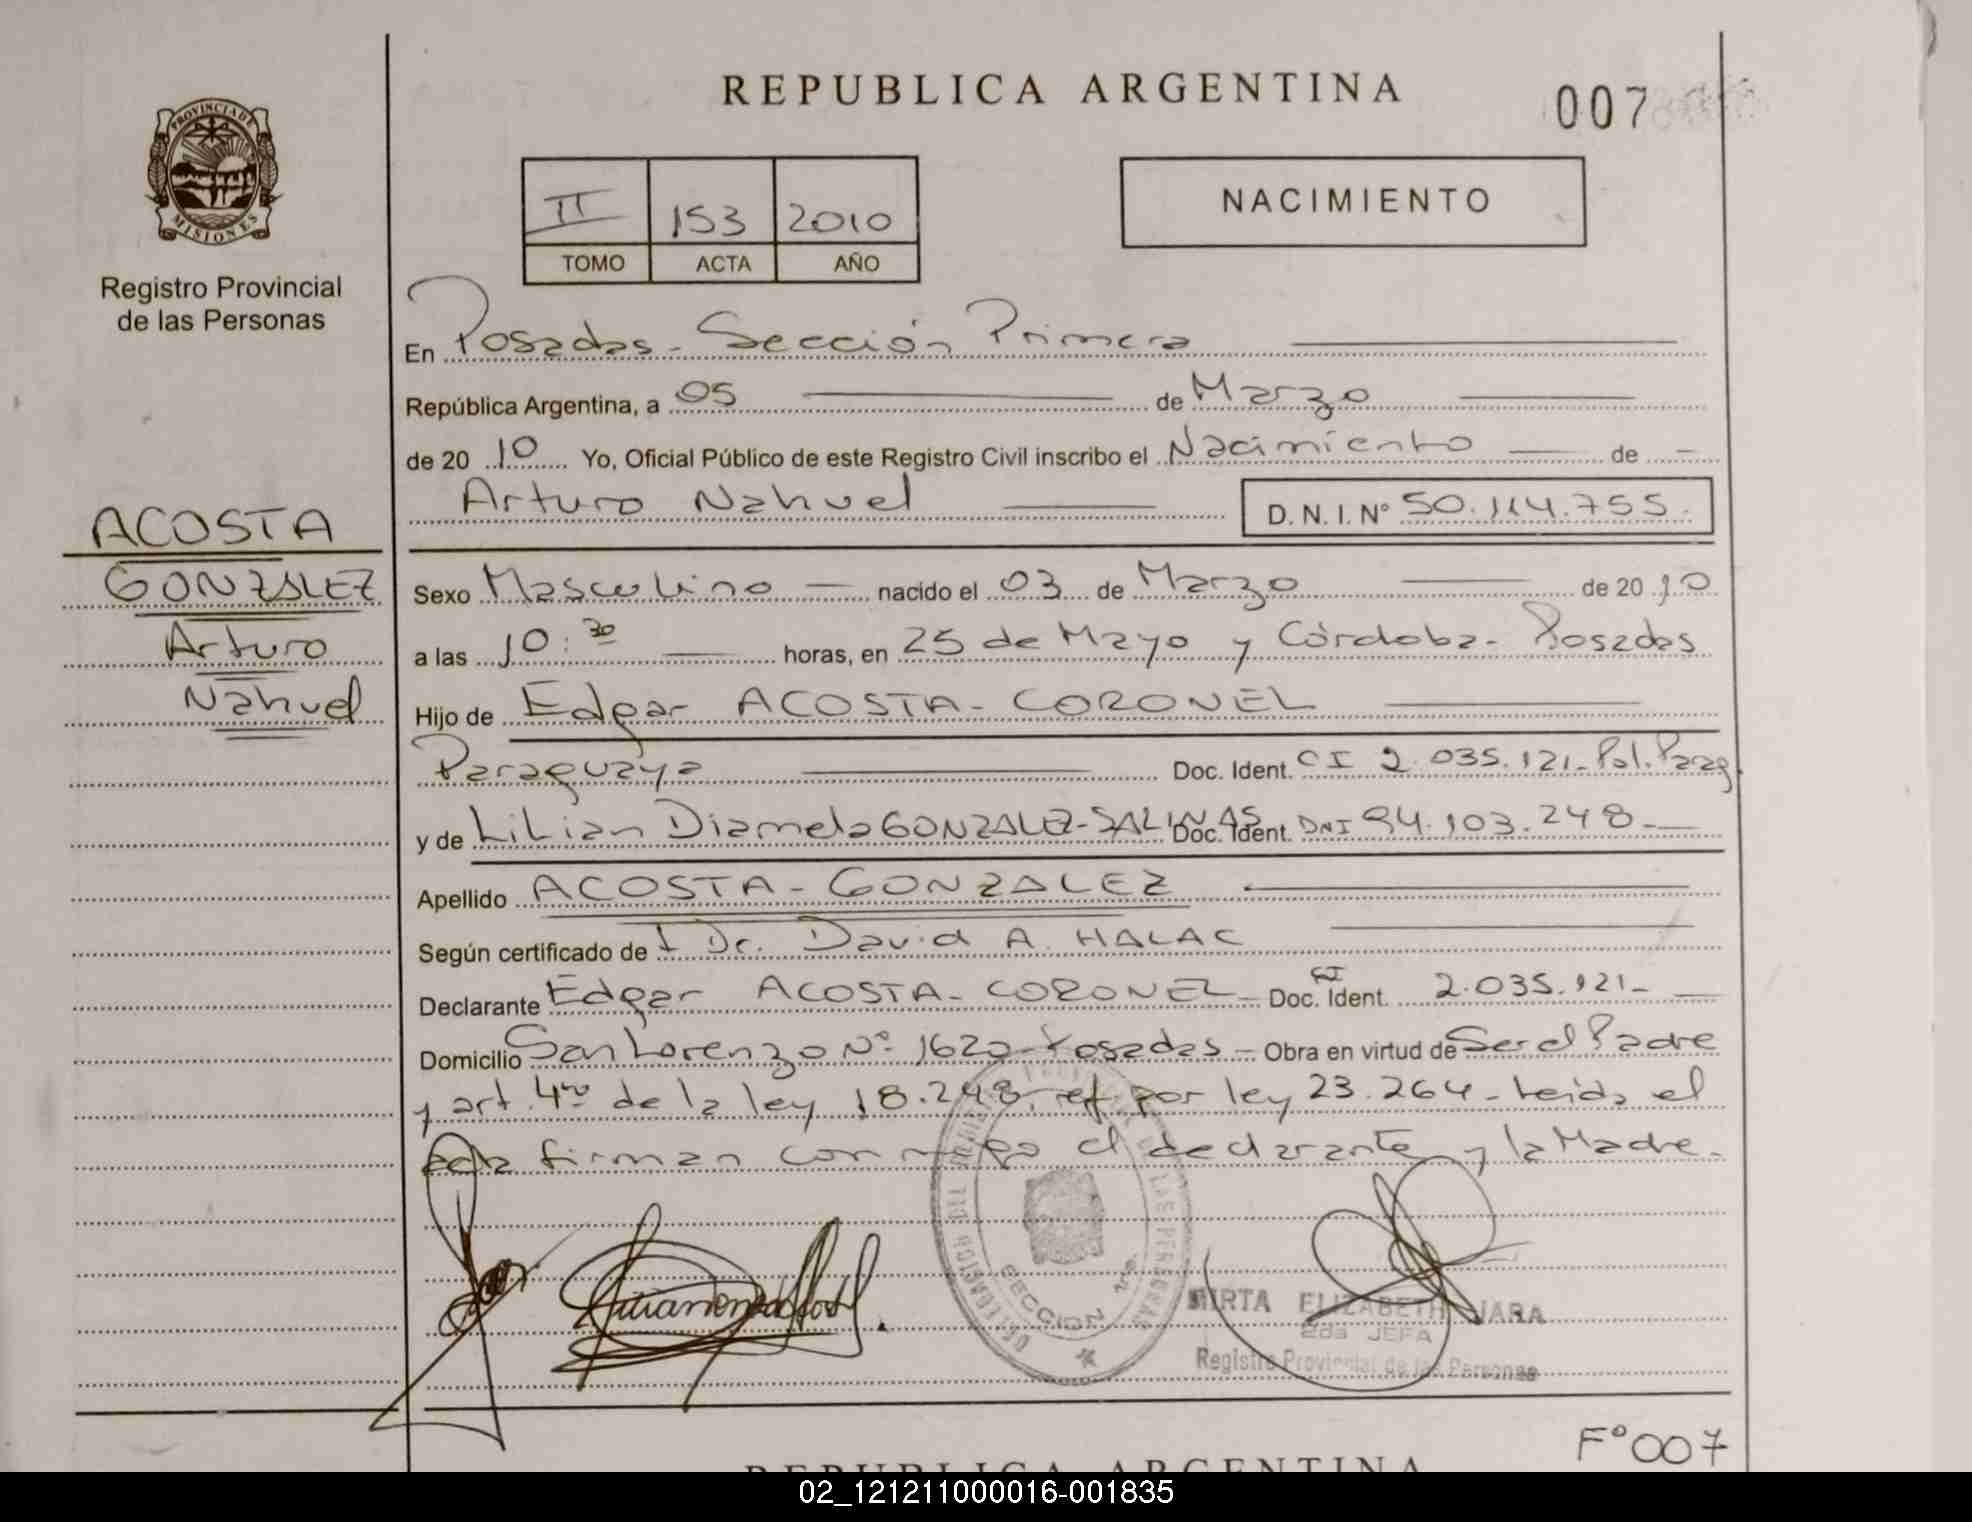 REPUBLICA ARGENTINA
007
PROVINCIA DE
MISIONES
Registro Provincial
de las Personas
II 153 2010
TOMO ACTA AÑO
NACIMIENTO
En Posadas - Sección Primera
República Argentina, a 05 de Marzo
de 20 10 Yo, Oficial Público de este Registro Civil inscribo el Nacimiento de
Arturo Nahuel D. N. I. Nº 50.114.755.
ACOSTA
GONZALEZ
Arturo
Nahuel
Sexo Masculino nacido el 03 de Marzo de 20 10
a las 10:30 horas, en 25 de Mayo y Córdoba - Posadas
Hijo de Edgar ACOSTA - CORONEL
Paraguaya Doc. Ident. CI 2.035.121 - Pol. Parag.
y de Lilian Diamela GONZALEZ - SALINAS Doc. Ident. DNI 94.103.248 -
Apellido ACOSTA - GONZALEZ
Según certificado de Dr. David A. HALAC
Declarante Edgar ACOSTA - CORONEL - Doc. Ident. CI 2.035.121 -
Domicilio San Lorenzo Nº 1620 - Posadas - Obra en virtud de Ser el Padre
y art. 4to de la ley 18.248, ref. por ley 23.264 - Leida el
acta firman conmigo el declarante y la Madre.
SECCION 1ra
MIRTA ELIZABETH JARA
2da JEFA
Registro Provincial de las Personas
Fº 007
REPUBLICA ARGENTINA
02_121211000016-001835